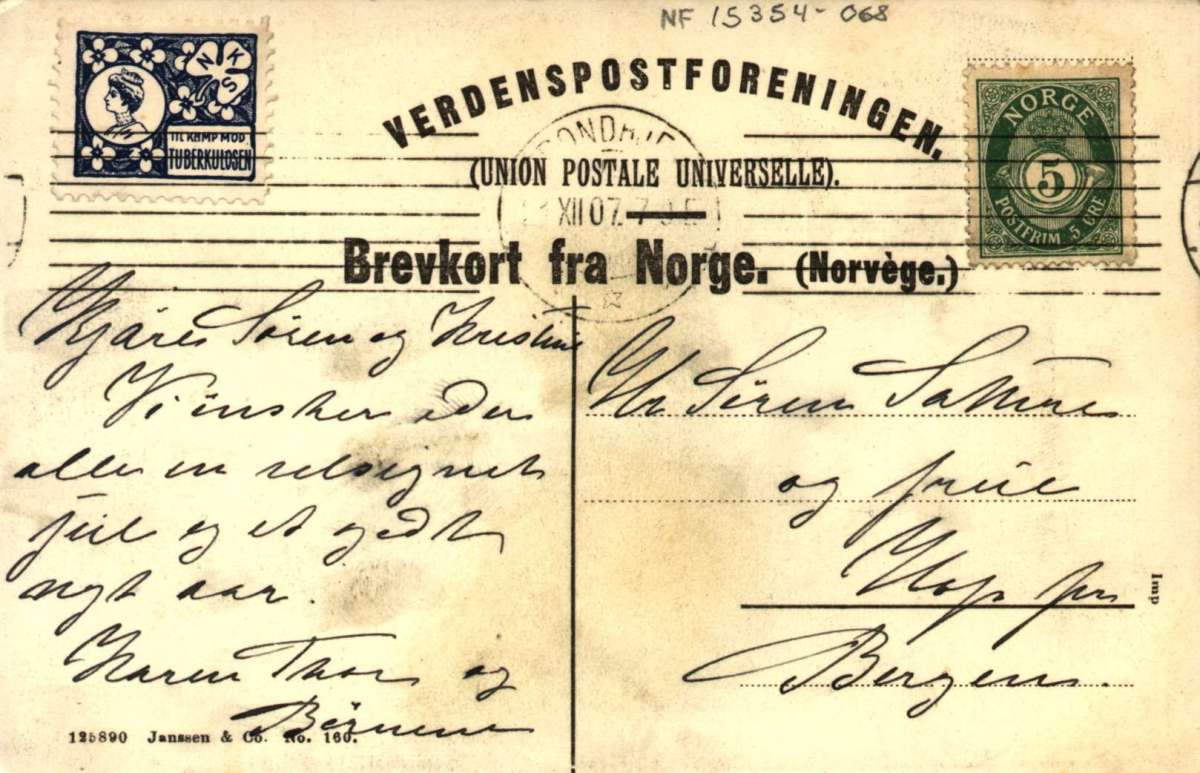 NF 15354-068
NKS
TIL KAMP MOD
TUBERKULOSEN
VERDENSPOSTFORENINGEN.
(UNION POSTALE UNIVERSELLE).
Brevkort fra Norge. (Norvège.)
NORGE
5
POSTFRIM 5 ØRE
TRONDHJE
XII 07. 7
Kjære Søren og Kristine
Vi ønsker eder
alle en velsignet
jul og et godt
nyt aar.
Karen Thor og
Børnene
Hr Søren
og frue
Hop pr
Bergen.
Imp
125890 Janssen & Co. No. 160.